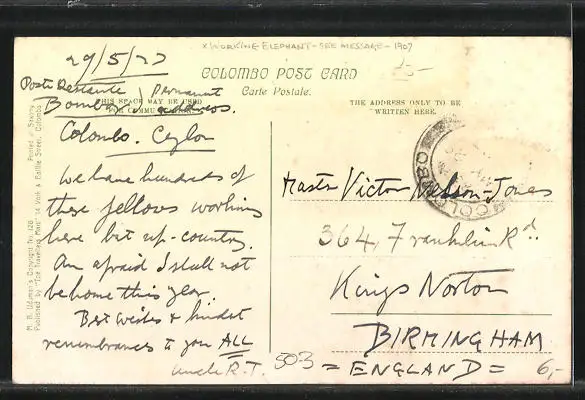 x WORKING ELEPHANT - SEE MESSAGE - 1907
29/5/22
COLOMBO POST CARD
Carte Postale.
Poste Restante
Permanent
THIS SPACE MAY BE USED
FOR COMMUNICATION.
Bombay
address.
THE ADDRESS ONLY TO BE
WRITTEN HERE.
Colombo. Ceylon
We have hundreds of
these fellows working
here but up-country.
Am afraid I shall not
be home this year.
Best wishes & kindest
remembrances to you ALL
Uncle R.T.
COLOMBO
Master Victor Nelson-Jones
364, Franklin Rd
Kings Norton
BIRMINGHAM
= ENGLAND =
503
6,-
Printed in Saxony
Published by "The Travellers Mart" 14 York & Baillie Street, Colombo